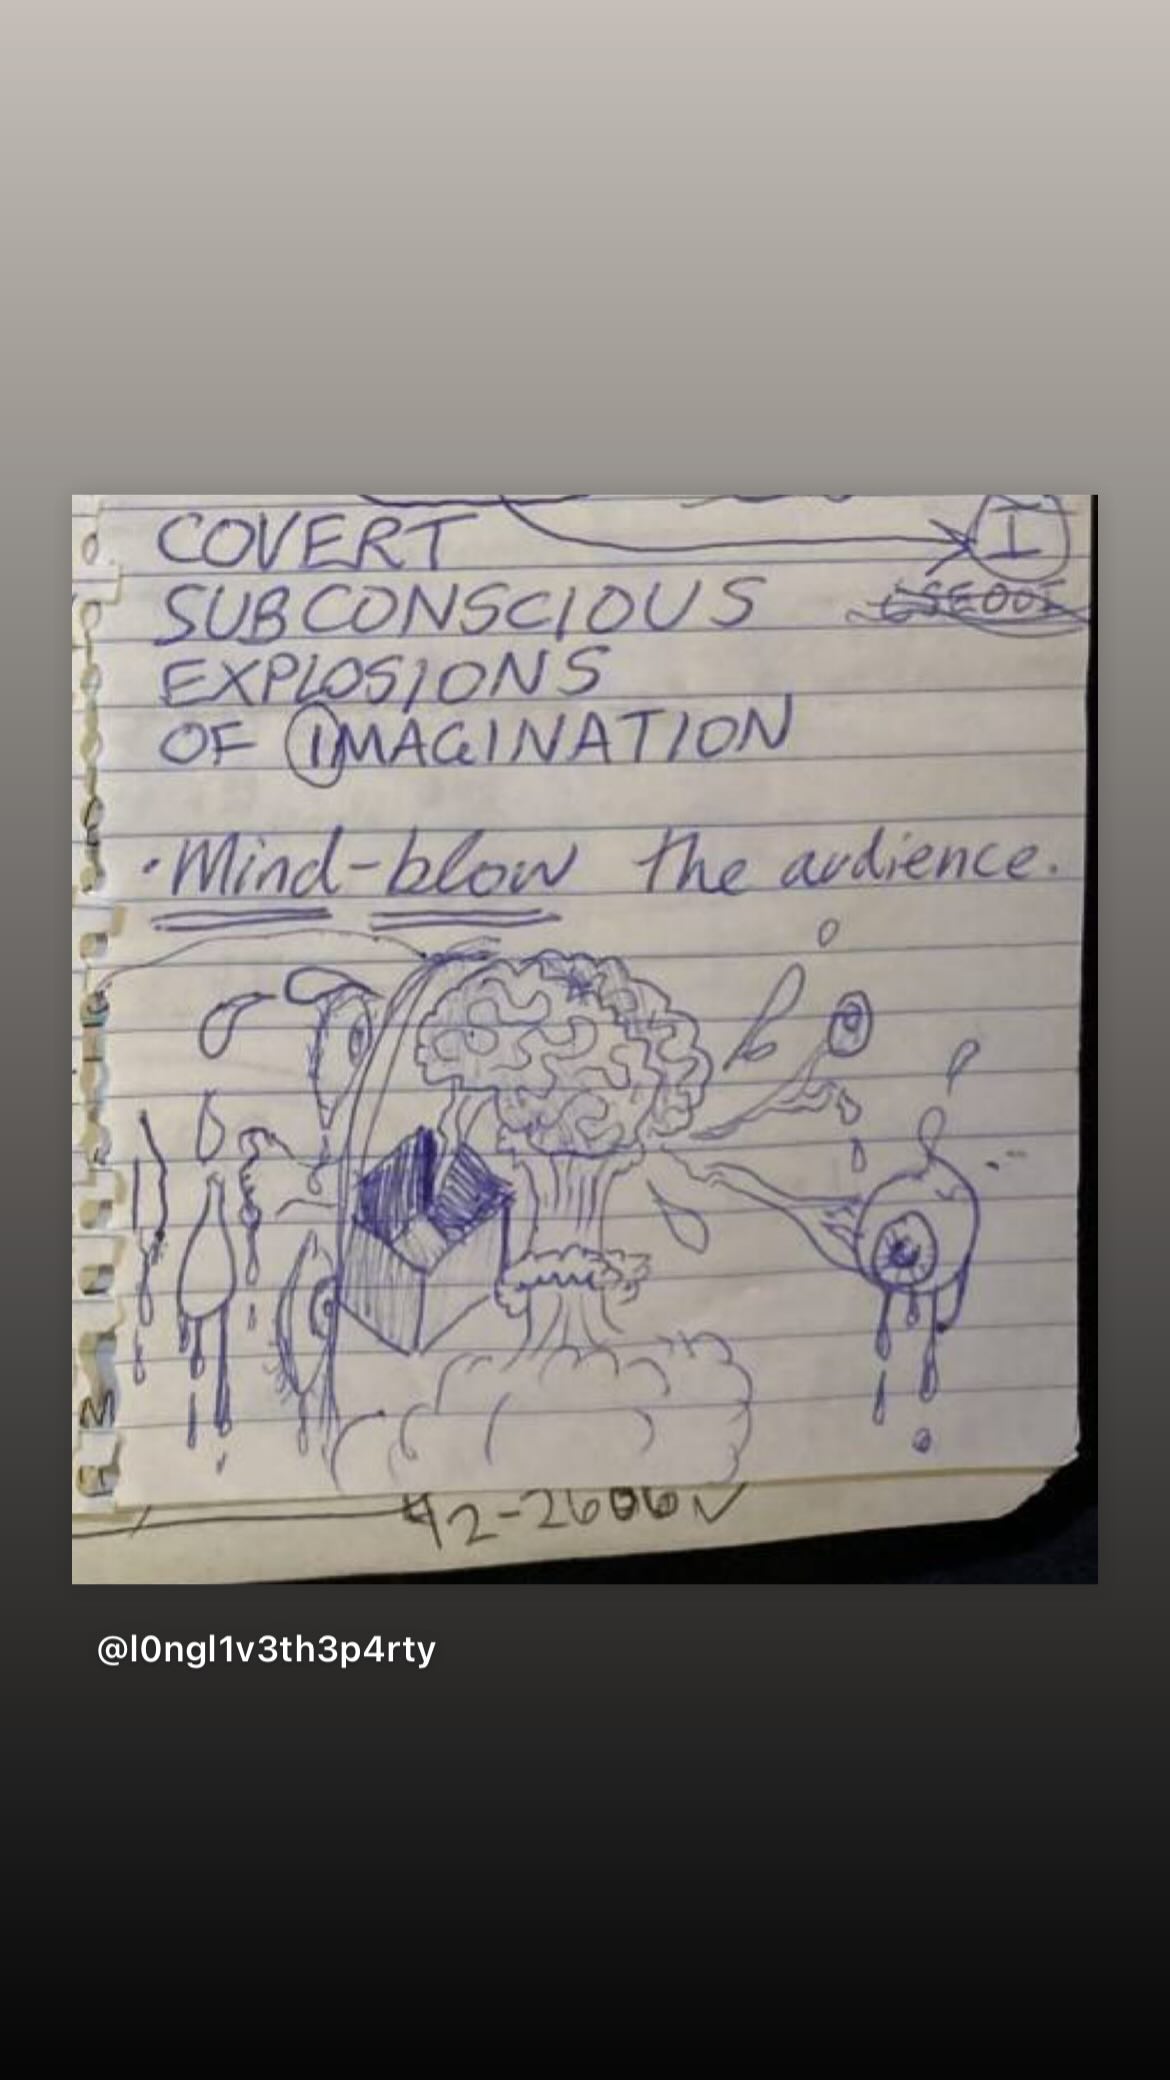 I
COVERT
SUBCONSCIOUS
EXPLOSIONS
OF IMAGINATION
• Mind-blow the audience.
M
42-2606
@l0ngl1v3th3p4rty